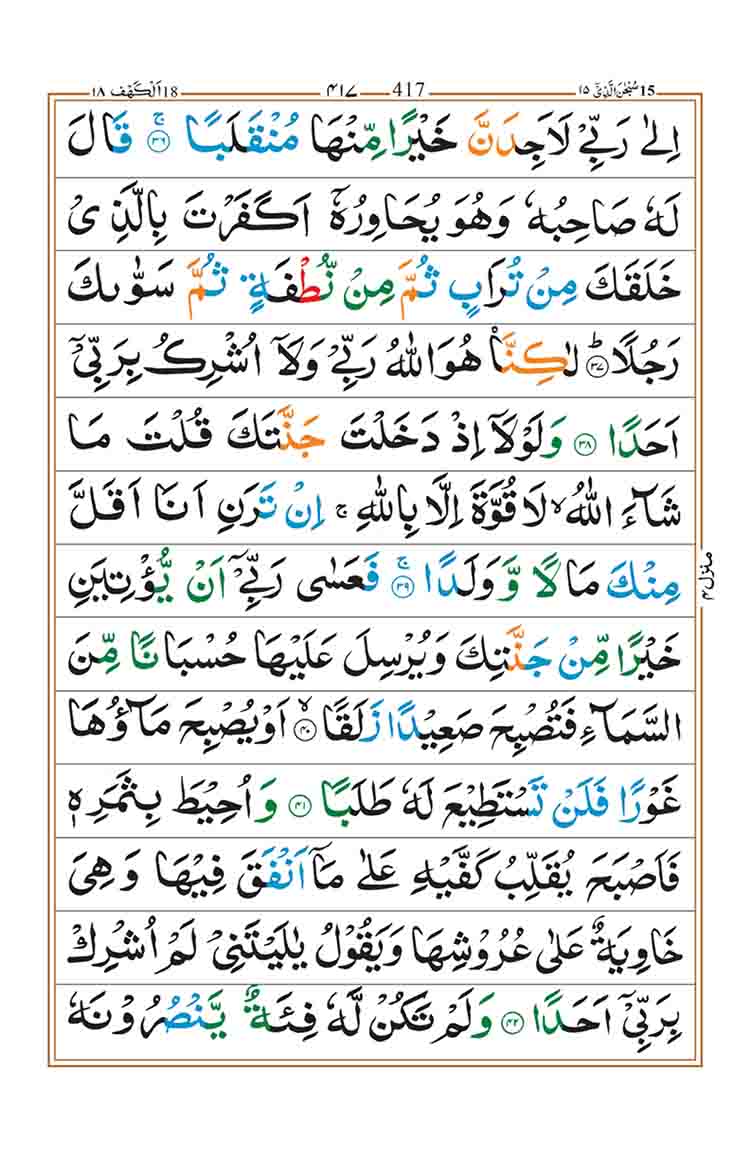 15 سُبْحٰنَ الَّذِیْۤ ۱۵ 417 ۴۱۷ 18 اَلْكَهْف ۱۸
اِلٰی رَبِّیْ لَاَجِدَنَّ خَیْرًا مِّنْهَا مُنْقَلَبًا ۚ ﴿۳۶﴾ قَالَ
لَهٗ صَاحِبُهٗ وَهُوَ یُحَاوِرُهٗۤ اَكَفَرْتَ بِالَّذِیْ
خَلَقَكَ مِنْ تُرَابٍ ثُمَّ مِنْ نُّطْفَةٍ ثُمَّ سَوّٰىكَ
رَجُلًا ؕ ﴿۳۷﴾ لٰكِنَّا۠ هُوَ اللّٰهُ رَبِّیْ وَلَاۤ اُشْرِكُ بِرَبِّیْۤ
اَحَدًا ﴿۳۸﴾ وَلَوْلَاۤ اِذْ دَخَلْتَ جَنَّتَكَ قُلْتَ مَا
شَآءَ اللّٰهُ ۙ لَا قُوَّةَ اِلَّا بِاللّٰهِ ۚ اِنْ تَرَنِ اَنَا اَقَلَّ
مِنْكَ مَالًا وَّوَلَدًا ۚ ﴿۳۹﴾ فَعَسٰی رَبِّیْۤ اَنْ یُّؤْتِیَنِ
خَیْرًا مِّنْ جَنَّتِكَ وَیُرْسِلَ عَلَیْهَا حُسْبَانًا مِّنَ
السَّمَآءِ فَتُصْبِحَ صَعِیْدًا زَلَقًا ۙ ﴿۴۰﴾ اَوْ یُصْبِحَ مَآؤُهَا
غَوْرًا فَلَنْ تَسْتَطِیْعَ لَهٗ طَلَبًا ﴿۴۱﴾ وَاُحِیْطَ بِثَمَرِهٖ
فَاَصْبَحَ یُقَلِّبُ كَفَّیْهِ عَلٰی مَاۤ اَنْفَقَ فِیْهَا وَهِیَ
خَاوِیَةٌ عَلٰی عُرُوْشِهَا وَیَقُوْلُ یٰلَیْتَنِیْ لَمْ اُشْرِكْ
بِرَبِّیْۤ اَحَدًا ﴿۴۲﴾ وَلَمْ تَكُنْ لَّهٗ فِئَةٌ یَّنْصُرُوْنَهٗ
منزل ۴